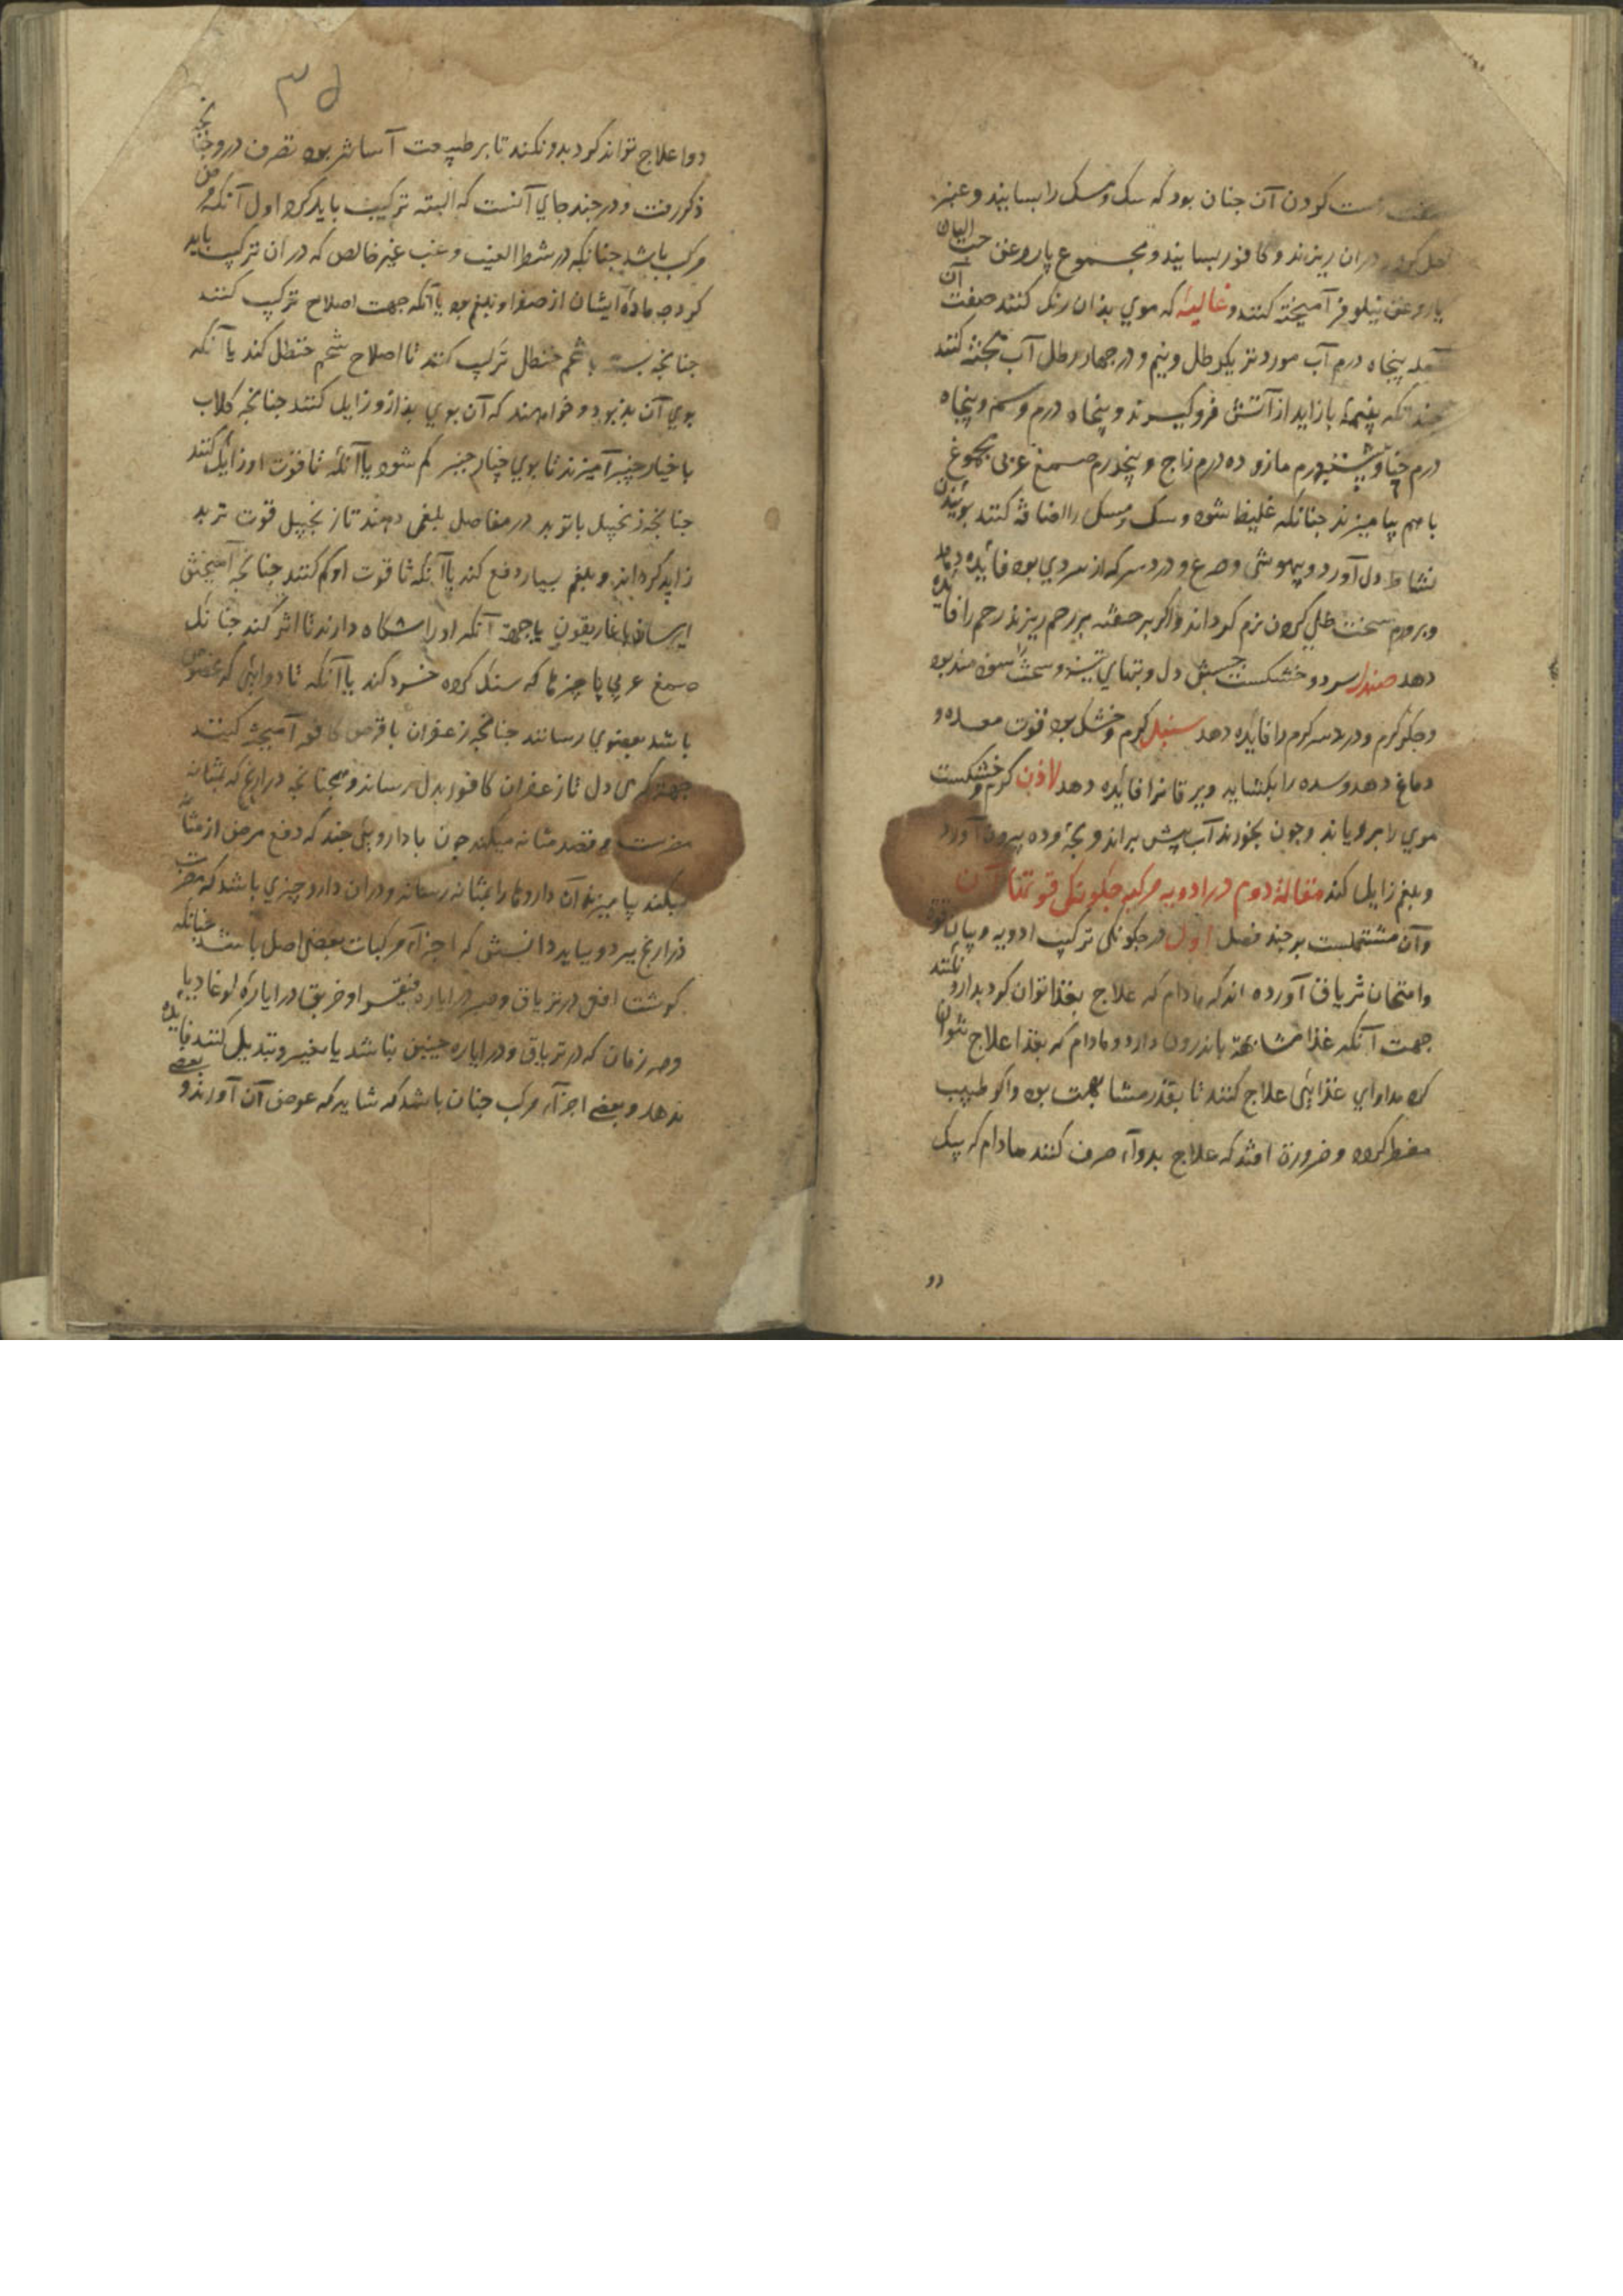 کردن آن جنان بود که سک و مسک را بسایند و عنبر
در ان ریزند و کافور بسایند و مجموع یا روغن حب البان
یا روغن نیلوفر آمیخته کنند و غالیهٔ که موی بدان رنک کنند صفت آن
آمله پنجاه درم آب مورد تر یکرطل و نیم و در جهار رطل آب پخته کنند
جندانکه بنیمهٔ بازاید از آتش فرو کیرند و پنجاه درم وسمه و پنجاه
درم حنا و درم مازو ده درم زاج و پنجدرم صمغ عربی مجموع
با هم بیامیزند جنانکه غلیظ شود و سک و مسک را اضافه کنند بوئیدن
نشاط دل آورد و بیهوشی و صرع و درد سر که از سردی بود فائده دهد
و بر ورم سخت طلی کردن نرم کرداند و اکر بر حقنه بر رحم ریزند رحم را فائده
دهد صندل سرد و خشکست جستن دل و تبهای تیز و سخت را سود مند بود
و جکر کرم و درد سر کرم را فایده دهد سنبل کرم و خشک بود قوت معده و
دماغ دهد و سده را بکشاید و یرقانرا فایده دهد لاذن کرم و خشکست
موی را برویاند و جون بخورند آب پیش براند و بجهٔ مرده بیرون آورد
و بلغم زایل کند مقالهٔ دوم در ادویه مرکبه جکونکی قوتهاء آن
و آن مشتملست بر جند فصل اول در جکونکی ترکیب ادویه و بیان قوة
و امتحان تریاق آورده اند که مادام که علاج بغذا توان کرد بدارو نکنند
جهت آنکه غذا مشابهة باندرون دارد و مادام که بغذا علاج نتوان
کرد مداوای غذایی علاج کنند تا بقدر مشابهت بود و اکر طبیب
مضطر کردد و ضرورة افتد که علاج بدوآء صرف کنند مادام که بیک
دو
۳۵
دوا علاج تواند کرد بدو نکند تا بر طبیعت آسانتر بود تصرف در و جنانجه
ذکر رفت و در جند جای آنست که البته ترکیب باید کرد اول آنکه مرض
مرکب باشد جنانکه در شطر الغب و غب غیر خالص که در ان ترکیب باید
کرد جه مادهٔ ایشان از صفرا و بلغم بود یا آنکه جهت اصلاح ترکیب کنند
جنانجه با شحم حنظل ترکیب کنند تا اصلاح شحم حنظل کند یا آنکه
بوی آن بد بود و خواهند که آن بوی بد ازو زایل کنند جنانجه کلاب
با خیار جنبر آمیزند تا بوی خیار جنبر کم شود یا آنکه تا قوت او زایل کنند
جنانجه زنجبیل با تربد در مفاصل بلغمی دهند تا زنجبیل قوت تربد
زاید کرداند و بلغم بسیار دفع کند یا آنکه تا قوت او کم کنند جنانجه آمیختن
با غاریقون یا جهة آنکه او را نکاه دارند تا اثر کند جنانک
صمغ عربی با جیزها که سنک کرده خرد کند یا آنکه تا دوائی که مخصوص
باشد بعضوی رسانند جنانجه زعفران با قرص کافور آمیخته کنند
جهة کرمی دل تا زعفران کافور بدل رساند و همجنانجه دراریح که بمثانه
و قصد مثانه میکند جون با داروئی جند که دفع مرض از مثانه
میکند بیامیزند آن داروها را بمثانه رساند و در ان دارو جیزی باشد که مضرت
ذراریح ببرد و بباید دانستن که اجزآء مرکبات بعضی اصل باشند جنانکه
کوشت افعی در تریاق و صبر در ایاره فیقرا و خربق در ایارهٔ لوغادیا
و هر زمان که در تریاق و در ایاره جنین نباشد یا تغییر و تبدیل کنند فایده
ندهد و بعضی اجزآء مرکب جنان باشد که شاید که عوض آن آورند و بعضی